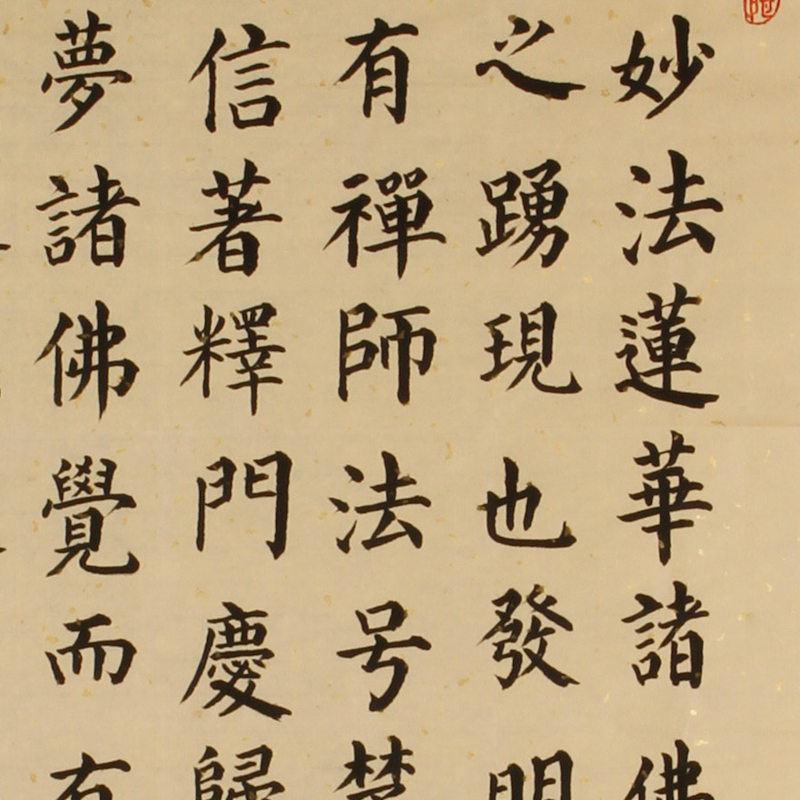 妙法蓮華諸佛
之踴現也發明
有禪師法号楚
信著釋門慶歸
夢諸佛覺而有